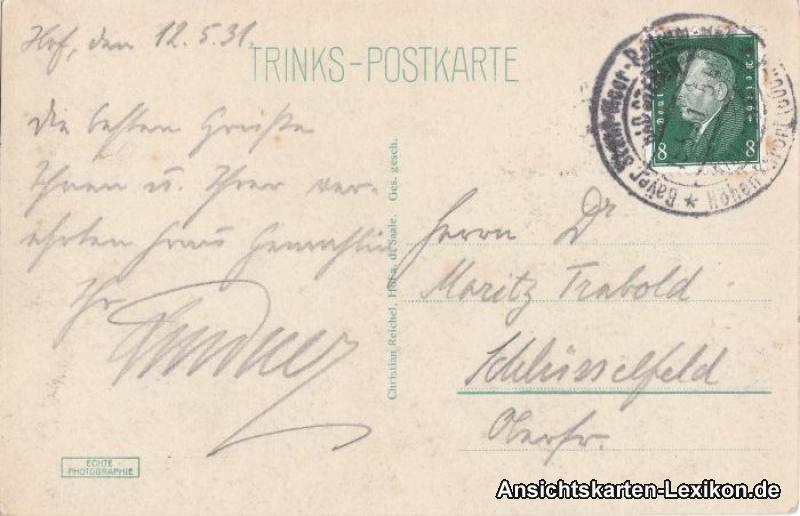 Hof, den 12.5.31.
TRINKS-POSTKARTE
Die besten Grüße
Ihnen u. Ihrer ver-
ehrten Frau Gemahlin
Ihr
Christian Reichel, Hof a. d. Saale. Ges. gesch.
Herrn Dr
Moritz Trabold
Schlüsselfeld
Oberfr.
ECHTE
PHOTOGRAPHIE
8 8
Bayer. Stahl-Moor-
Ansichtskarten-Lexikon.de